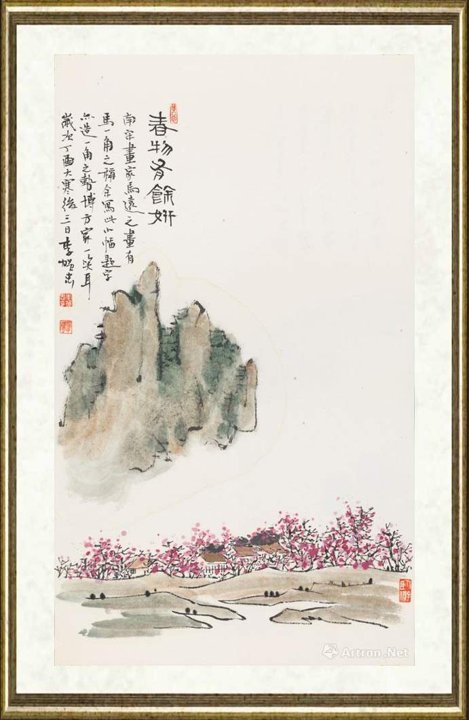 春物有餘妍
南宋畫家馬遠之畫有
馬一角之稱余寫此小幅題字
亦造一角之勢博方家一笑耳
歲次丁酉大寒後三日李忠
Artron.Net